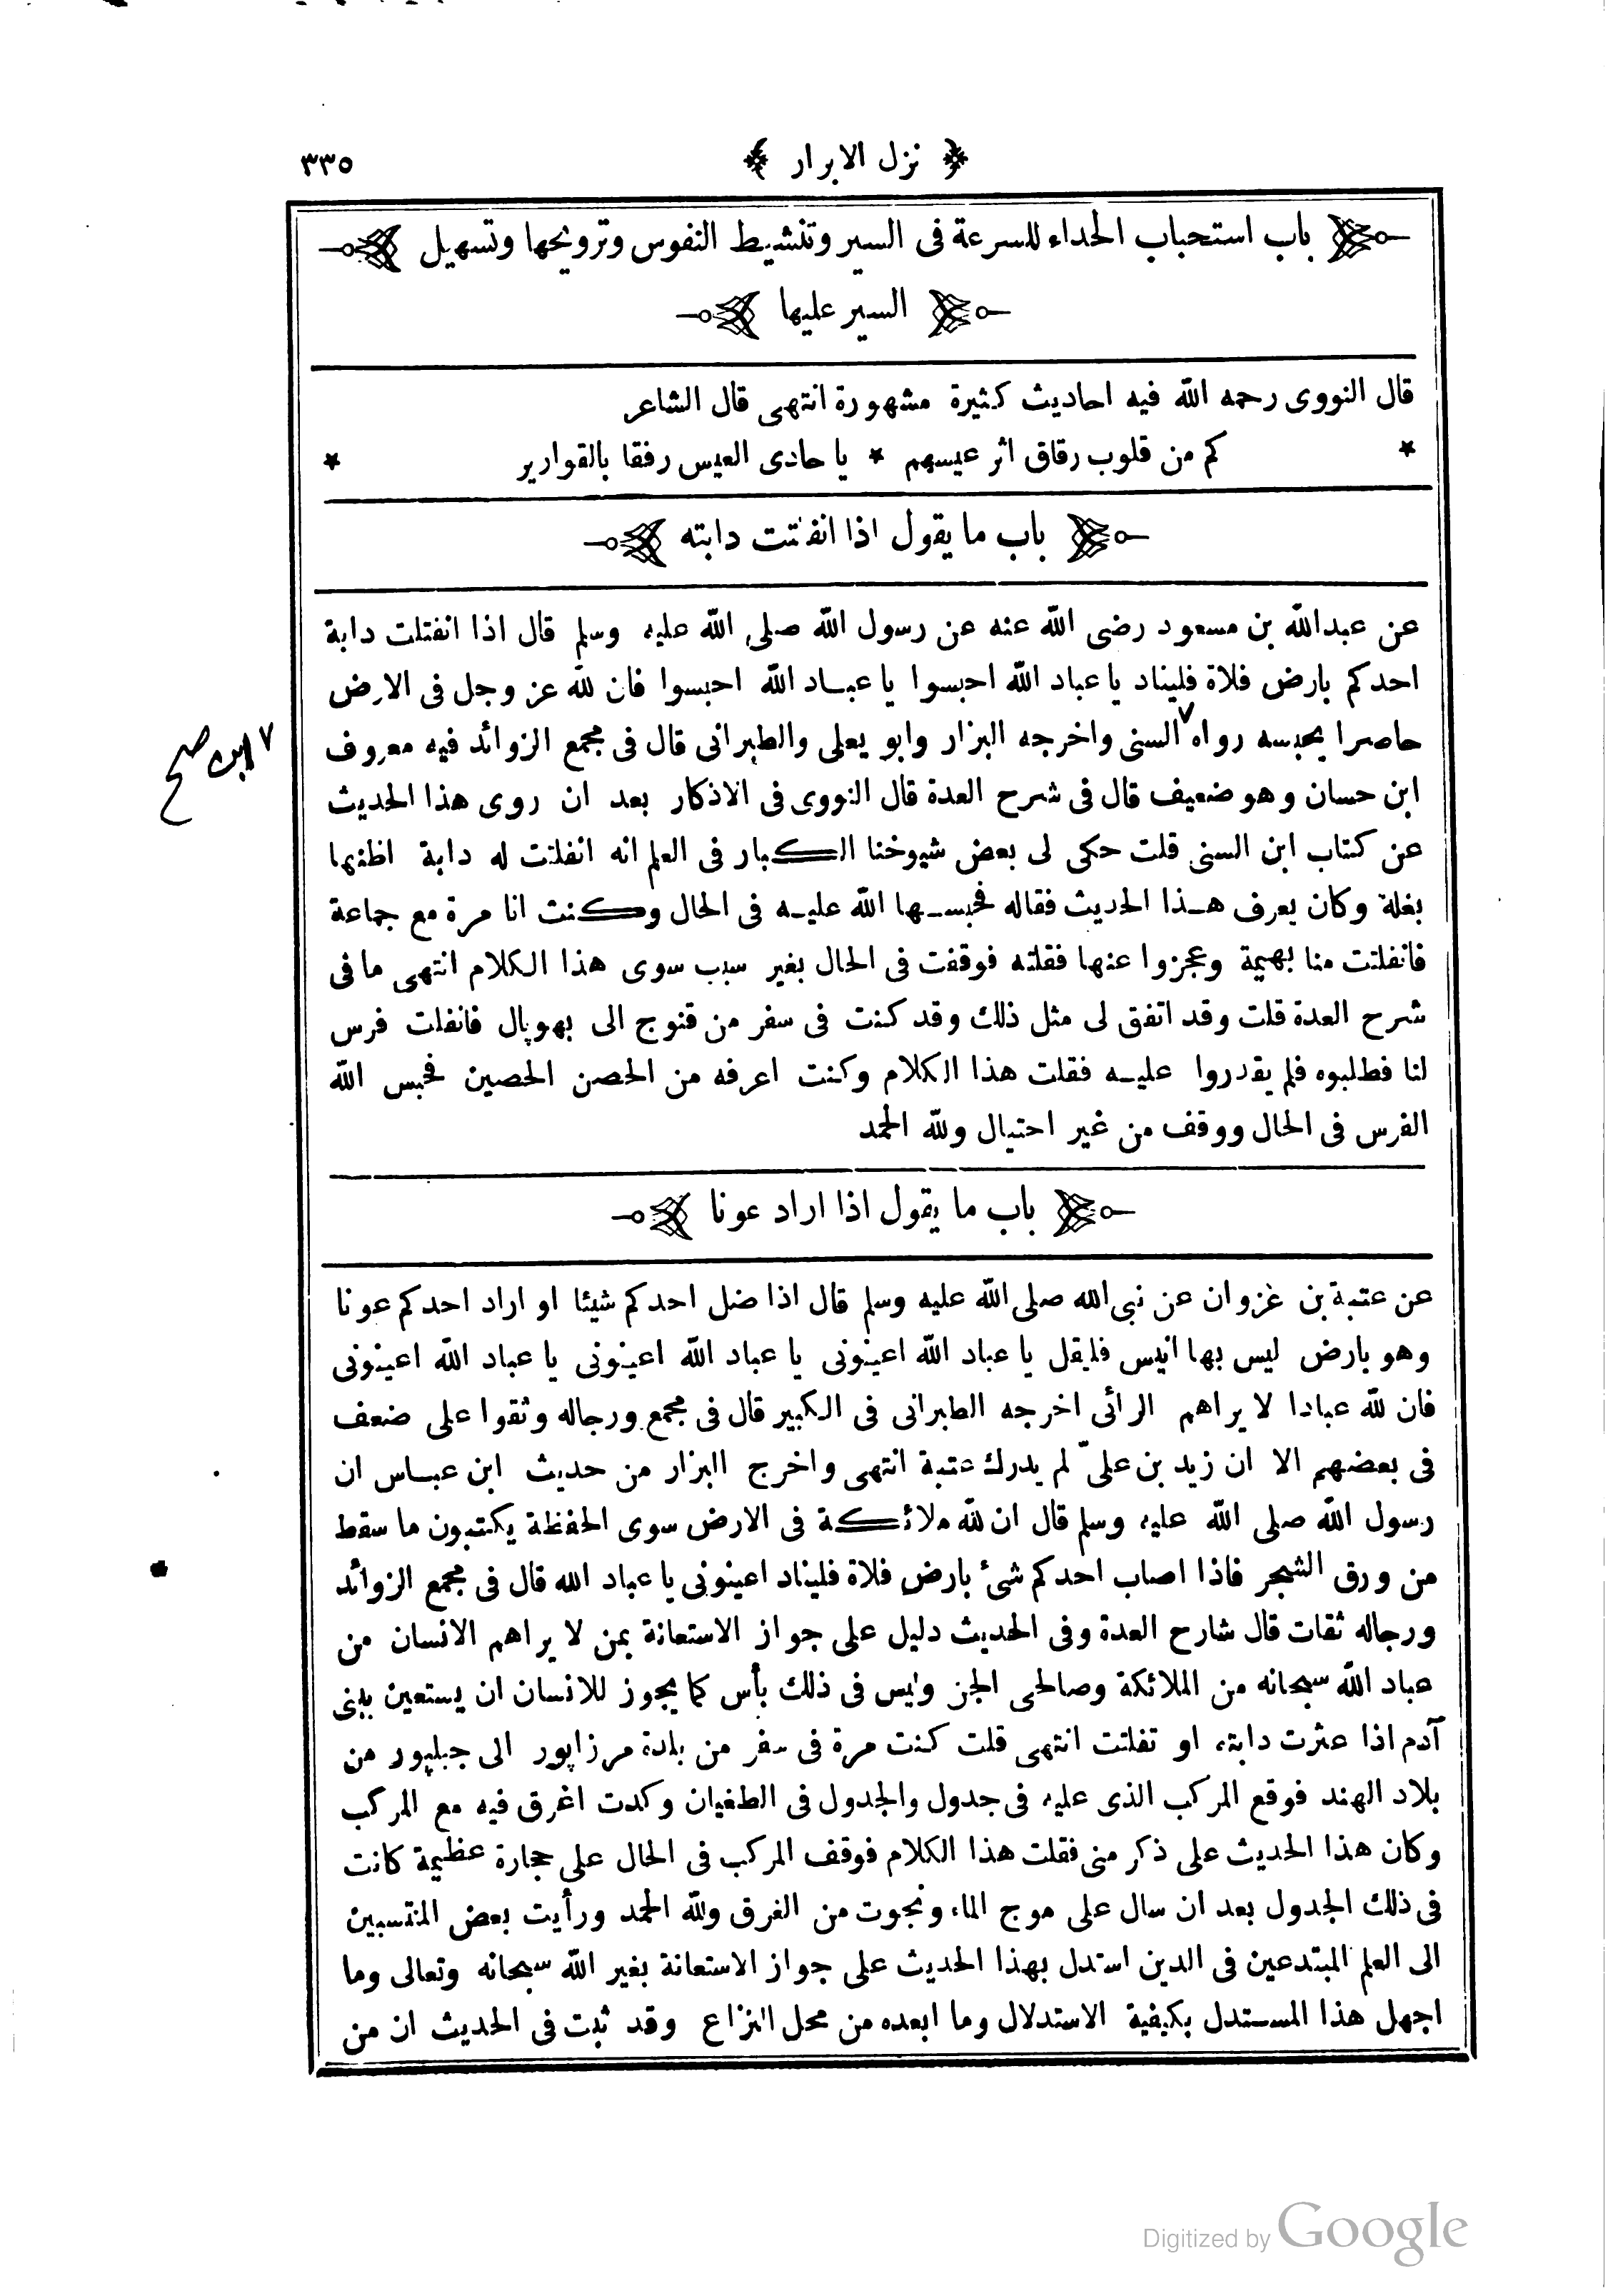 ﴿ نزل الابرار ﴾ ٣٣٥
باب استحباب الحداء للسرعة فى السير وتنشيط النفوس وترويحها وتسهيل
السير عليها
قال النووى رحمه الله فيه احاديث كثيرة مشهورة انتهى قال الشاعر
* كم من قلوب رقاق اثر عيسهم * يا حادى العيس رفقا بالقوارير *
باب ما يقول اذا انفلتت دابته
عن عبدالله بن مسعود رضى الله عنه عن رسول الله صلى الله عليه وسلم قال اذا انفتلت دابة
احدكم بارض فلاة فليناد يا عباد الله احبسوا يا عباد الله احبسوا فان لله عز وجل فى الارض
حاصرا يحبسه رواه ٧ السنى واخرجه البزار وابو يعلى والطبرانى قال فى مجمع الزوائد فيه معروف
٧ ابن صح
ابن حسان وهو ضعيف قال فى شرح العدة قال النووى فى الاذكار بعد ان روى هذا الحديث
عن كتاب ابن السنى قلت حكى لى بعض شيوخنا الكبار فى العلم انه انفلتت له دابة اظنها
بغلة وكان يعرف هذا الحديث فقاله فحبسها الله عليه فى الحال وكنت انا مرة مع جماعة
فانفلتت منا بهيمة وعجزوا عنها فقلته فوقفت فى الحال بغير سبب سوى هذا الكلام انتهى ما فى
شرح العدة قلت وقد اتفق لى مثل ذلك وقد كنت فى سفر من قنوج الى بهوپال فانفلت فرس
لنا فطلبوه فلم يقدروا عليه فقلت هذا الكلام وكنت اعرفه من الحصن الحصين فحبس الله
الفرس فى الحال ووقف من غير احتيال ولله الحمد
باب ما يقول اذا اراد عونا
عن عتبة بن غزوان عن نبى الله صلى الله عليه وسلم قال اذا ضل احدكم شيئا او اراد احدكم عونا
وهو بارض ليس بها انيس فليقل يا عباد الله اعينونى يا عباد الله اعينونى يا عباد الله اعينونى
فان لله عبادا لا يراهم الرائى اخرجه الطبرانى فى الكبير قال فى مجمع ورجاله وثقوا على ضعف
فى بعضهم الا ان زيد بن علىّ لم يدرك عتبة انتهى واخرج البزار من حديث ابن عباس ان
رسول الله صلى الله عليه وسلم قال ان لله ملائكة فى الارض سوى الحفظة يكتبون ما سقط
من ورق الشجر فاذا اصاب احدكم شئ بارض فلاة فليناد اعينونى يا عباد الله قال فى مجمع الزوائد
ورجاله ثقات قال شارح العدة وفى الحديث دليل على جواز الاستعانة بمن لا يراهم الانسان من
عباد الله سبحانه من الملائكة وصالحى الجن وليس فى ذلك بأس كما يجوز للانسان ان يستعين ببنى
آدم اذا عثرت دابته او تفلتت انتهى قلت كنت مرة فى سفر من بلدة مرزاپور الى جبلپور من
بلاد الهند فوقع المركب الذى عليه فى جدول والجدول فى الطغيان وكدت اغرق فيه مع المركب
وكان هذا الحديث على ذكر منى فقلت هذا الكلام فوقف المركب فى الحال على حجارة عظيمة كانت
فى ذلك الجدول بعد ان سال على موج الماء ونجوت من الغرق ولله الحمد ورأيت بعض المنتسبين
الى العلم المبتدعين فى الدين استدل بهذا الحديث على جواز الاستعانة بغير الله سبحانه وتعالى وما
اجهل هذا المستدل بكيفية الاستدلال وما ابعده من محل النزاع وقد ثبت فى الحديث ان من
Digitized by Google